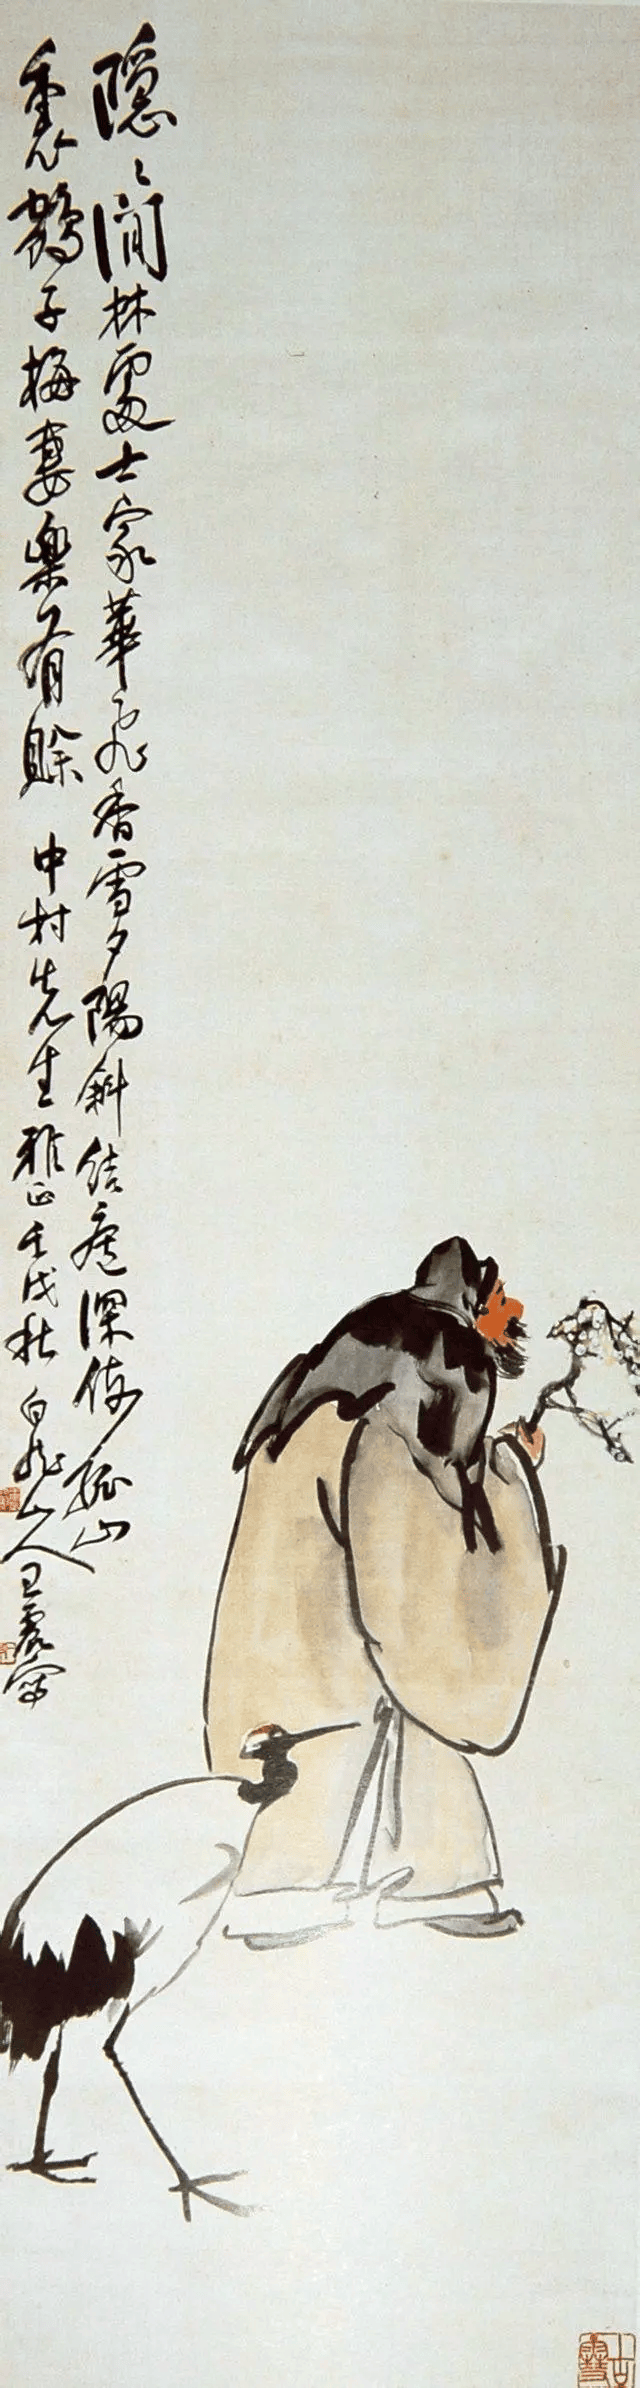 隐〻澗林處士家華飛香雪夕陽斜結廬深孤山
裏鶴子梅妻樂有賖 中村先生雅正壬戌秋白龍山人王震寫